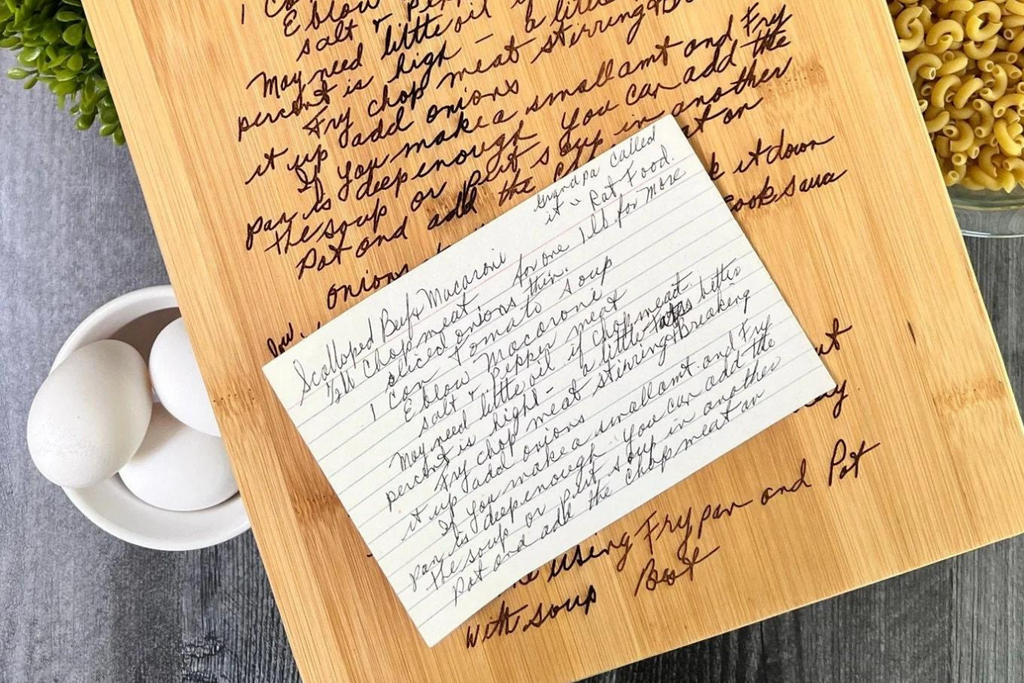 1 Co
Elbow
salt & pepp
May need little oil if
percent is high - a little
Fry chop meat stirring Br
it up add onions
If you make a small amt and Fry
pan is deep enough you can add the
the soup or Put soup in another
Pot and add the ch at on
onions k it down
low Cook sauce
Grandpa called
it " Rat Food.
Scalloped Beef & Macaroni
1/2 lb Chop meat for one 1 lb for more
sliced onions thin.
1 can Tomato soup
Elbow Macaroni
salt & Pepper meat &
May need little oil if chop meat
percent is high - a little tastes better
Fry chop meat stirring & Breaking
it up add onions
If you make a small amt and Fry
pan is deep enough you can add the
the soup or Put soup in another
Pot and add the chop meat on
ut
ay
using Fry pan and Pot
with soup Best